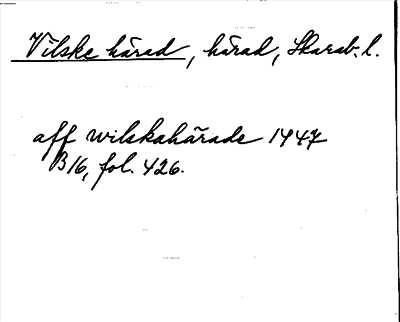 Vilske härad, härad, Skarab. l.
aff wilskahärade 1447
B16, fol. 426.